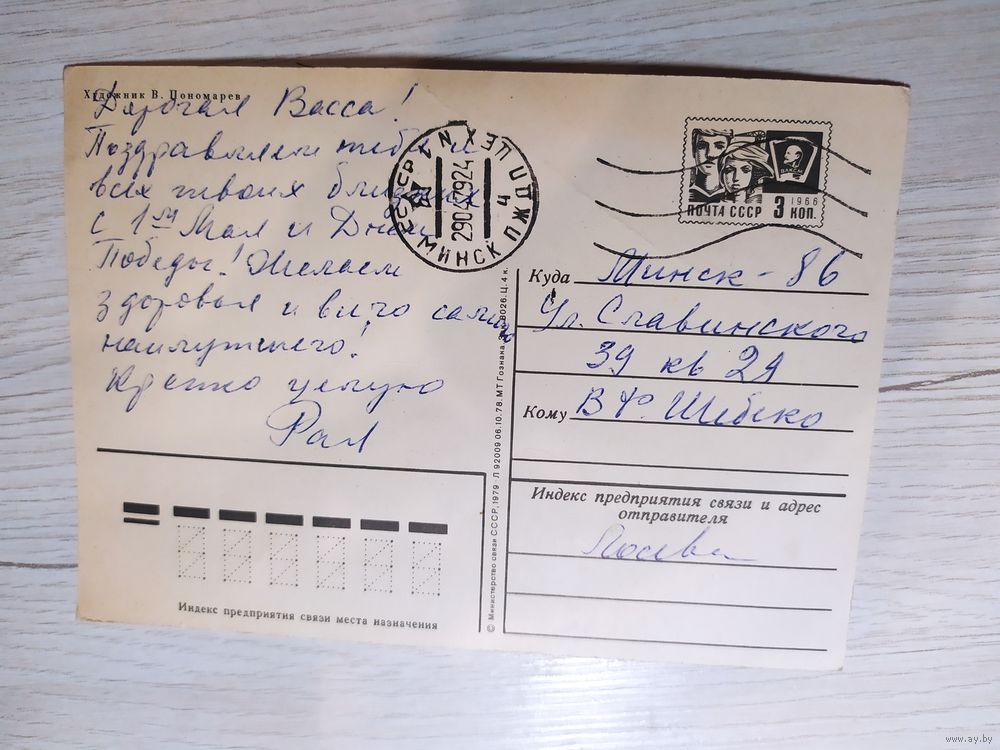 Художник В. Пономарев
Дорогая Васса!
Поздравляем тебя и
всех твоих близких
с 1ым Мая и Днем
Победы! Желаем
здоровья и всего самого
наилучшего!
Крепко целую
Рая
МИНСК ПЖДП
СССР
29047924
4
ПОЧТА СССР
1966
3 КОП.
Куда Минск - 86
Ул. Славинского
39 кв 29
Кому Шебеко
Индекс предприятия связи и адрес
отправителя
Индекс предприятия связи места назначения
© Министерство связи СССР, 1979 Л 92009 06.10.78. МТ Гознака. Ц. 4 к.
www.ay.by